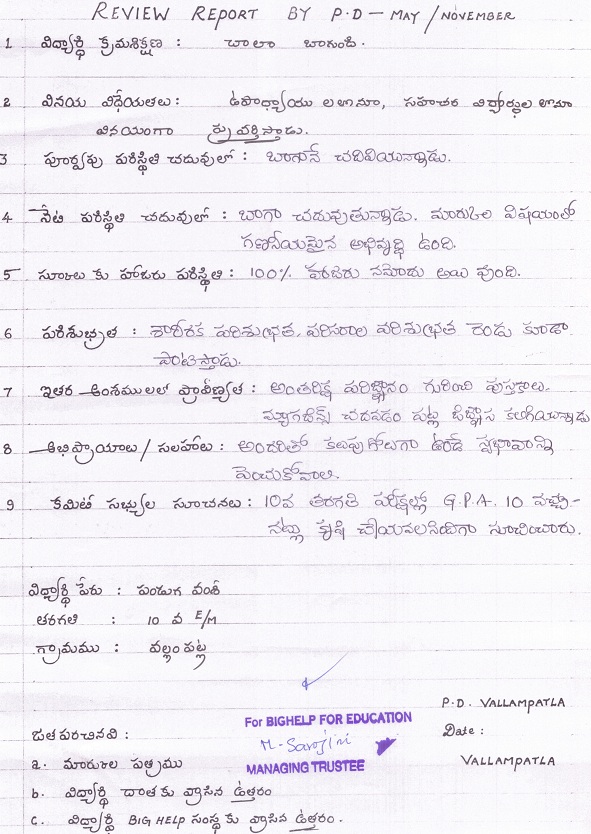 REVIEW REPORT BY P.D - MAY / NOVEMBER
1 విద్యార్థి క్రమశిక్షణ : చాలా బాగుంది.
2 వినయ విధేయతలు : ఉపాధ్యాయు లలోనూ, సహచర విద్యార్థుల లోనూ
వినయంగా ప్రవర్తిస్తాడు.
3 పూర్వపు పరిస్థితి చదువులో : బాగానే చదివియున్నాడు.
4 నేటి పరిస్థితి చదువులో : బాగా చదువుతున్నాడు. మార్కుల విషయంలో
గణనీయమైన అభివృద్ధి ఉంది.
5 స్కూలు కు హాజరు పరిస్థితి : 100% హాజరు నమోదు అయి వుంది.
6 పరిశుభ్రత : శారీరక పరిశుభ్రత, పరిసరాల పరిశుభ్రత రెండు కూడా
పాటిస్తాడు.
7 ఇతర అంశములలో ప్రావీణ్యత : అంతరిక్ష పరిజ్ఞానం గురించి పుస్తకాలు,
మ్యాగజైన్స్ చదవడం పట్ల జిజ్ఞాస కలిగియున్నాడు
8 అభిప్రాయాలు / సలహాలు : అందరితో కలుపుగోలుగా ఉండే స్వభావాన్ని
పెంచుకోవాలి.
9 కమిటి సభ్యుల సూచనలు : 10వ తరగతి పరీక్షల్లో G.P.A. 10 వచ్చే-
నట్లు కృషి చేయవలసిందిగా సూచించారు.
విద్యార్థి పేరు : పండుగ వంశీ
తరగతి : 10 వ E/M
గ్రామము : వల్లంపట్ల
P.D. VALLAMPATLA
For BIGHELP FOR EDUCATION
జతపరచినవి : M. Sarojini Date :
a. మార్కుల పత్రము MANAGING TRUSTEE VALLAMPATLA
b. విద్యార్థి దాతకు వ్రాసిన ఉత్తరం
c. విద్యార్థి BIG HELP సంస్థ కు వ్రాసిన ఉత్తరం.